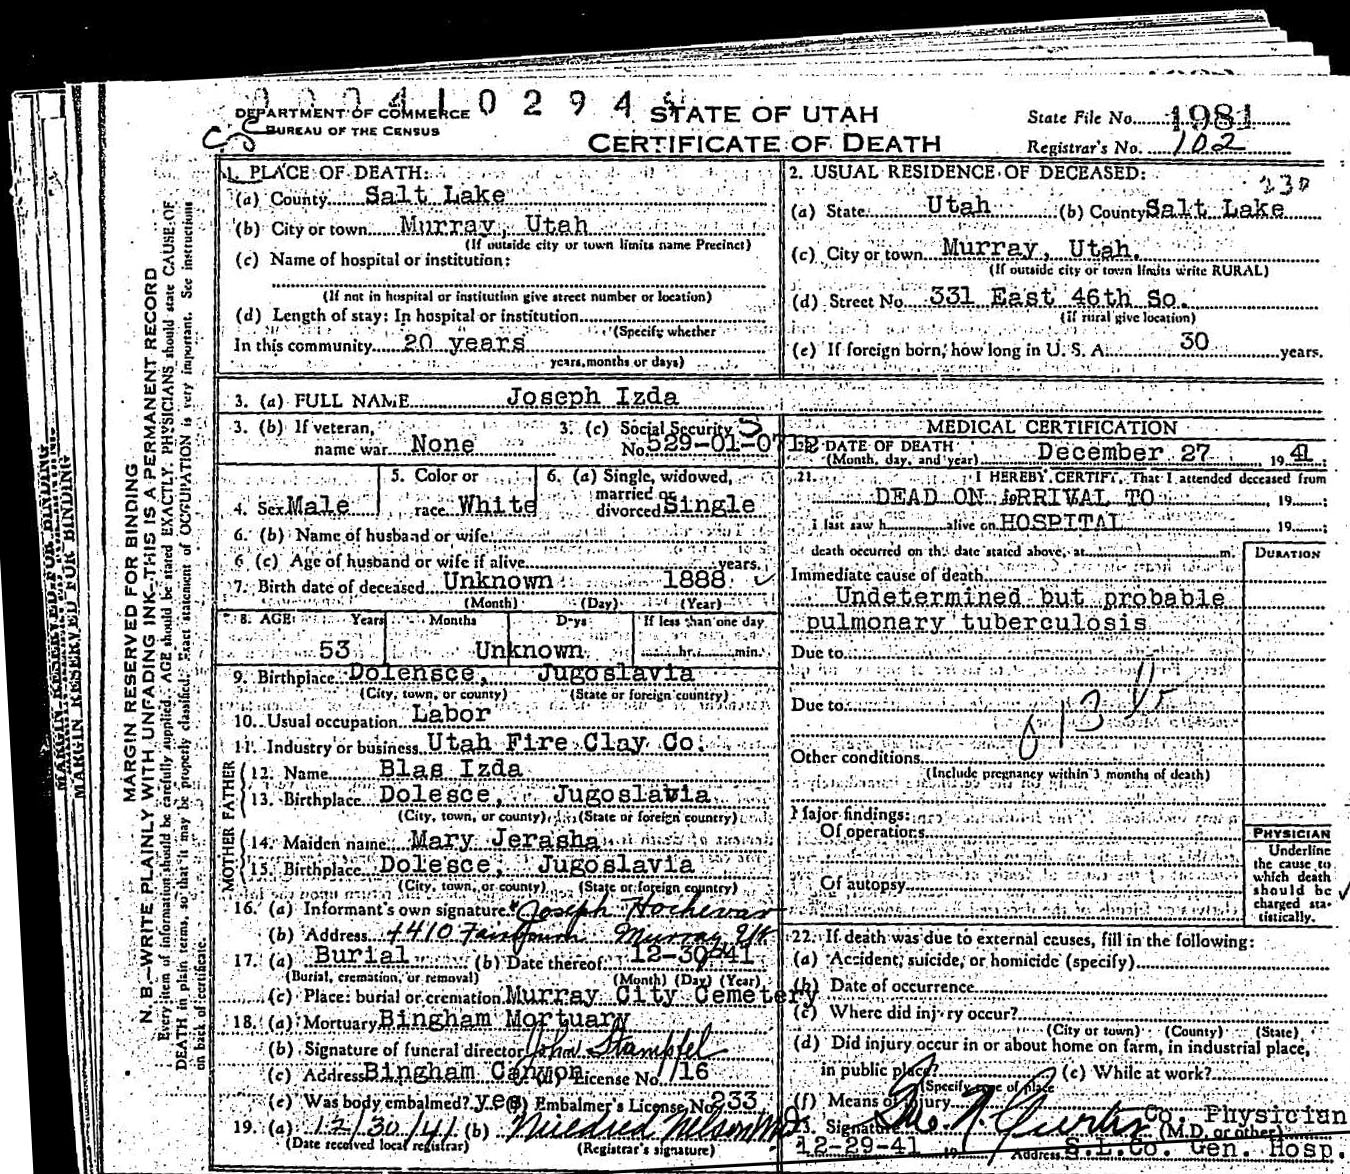 0004102944
DEPARTMENT OF COMMERCE
BUREAU OF THE CENSUS
STATE OF UTAH
CERTIFICATE OF DEATH
State File No. 1981
Registrar's No. 102
1. PLACE OF DEATH:
(a) County Salt Lake
(b) City or town Murray, Utah
(If outside city or town limits name Precinct)
(c) Name of hospital or institution:
(If not in hospital or institution give street number or location)
(d) Length of stay: In hospital or institution
(Specify whether
In this community 20 years
years, months or days)
2. USUAL RESIDENCE OF DECEASED:
230
(a) State Utah (b) County Salt Lake
(c) City or town Murray, Utah.
(If outside city or town limits write RURAL)
(d) Street No. 331 East 46th So.
(If rural give location)
(e) If foreign born, how long in U. S. A. 30 years.
3. (a) FULL NAME Joseph Izda
3. (b) If veteran, name war None
3. (c) Social Security No. 529-01-0712
4. Sex Male
5. Color or race White
6. (a) Single, widowed, married or divorced Single
6. (b) Name of husband or wife
6 (c) Age of husband or wife if alive years.
7. Birth date of deceased Unknown 1888
(Month) (Day) (Year)
8. AGE: Years Months Days If less than one day
53 Unknown hr. min.
9. Birthplace Dolensce, Jugoslavia
(City, town, or county) (State or foreign country)
10. Usual occupation Labor
11. Industry or business Utah Fire Clay Co.
FATHER
12. Name Blas Izda
13. Birthplace Dolesce, Jugoslavia
(City, town, or county) (State or foreign country)
MOTHER
14. Maiden name Mary Jerasha
15. Birthplace Dolesce, Jugoslavia
(City, town, or county) (State or foreign country)
16. (a) Informant's own signature Joseph Hochevar
(b) Address 4410 Murray
17. (a) Burial (b) Date thereof 12-30-41
(Burial, cremation, or removal) (Month) (Day) (Year)
(c) Place: burial or cremation Murray City Cemetery
18. (a) Mortuary Bingham Mortuary
(b) Signature of funeral director John Stampfel
(c) Address Bingham Canyon License No. 116
(e) Was body embalmed? yes Embalmer's License No. 233
19. (a) 12/30/41 (b) Mildred Nelson
(Date received local registrar) (Registrar's signature)
MEDICAL CERTIFICATION
DATE OF DEATH
(Month, day, and year) December 27 1941;
21. I HEREBY CERTIFY, That I attended deceased from
DEAD ON ARRIVAL TO , 19 ;
I last saw h alive on HOSPITAL , 19 ;
death occurred on the date stated above, at m.
DURATION
Immediate cause of death
Undetermined but probable
pulmonary tuberculosis
Due to
Due to
Other conditions
(Include pregnancy within 3 months of death)
Major findings:
Of operations
Of autopsy
PHYSICIAN
Underline
the cause to
which death
should be
charged sta-
tistically.
22. If death was due to external causes, fill in the following:
(a) Accident, suicide, or homicide (specify)
(b) Date of occurrence
(c) Where did injury occur?
(City or town) (County) (State)
(d) Did injury occur in or about home on farm, in industrial place,
in public place? (e) While at work?
(Specify type of place
(f) Means of injury
23. Signature Curtis Co. Physician
(M.D. or other)
12-29-41 19 Address S.L.Co. Gen. Hosp.
MARGIN RESERVED FOR BINDING
MARGIN RESERVED FOR BINDING
N. B.—WRITE PLAINLY WITH UNFADING INK—THIS IS A PERMANENT RECORD
Every item of information should be carefully supplied. AGE should be stated EXACTLY. PHYSICIANS should state CAUSE OF
DEATH in plain terms, so that it may be properly classified. Exact statement of OCCUPATION is very important. See instructions
on back of certificate.